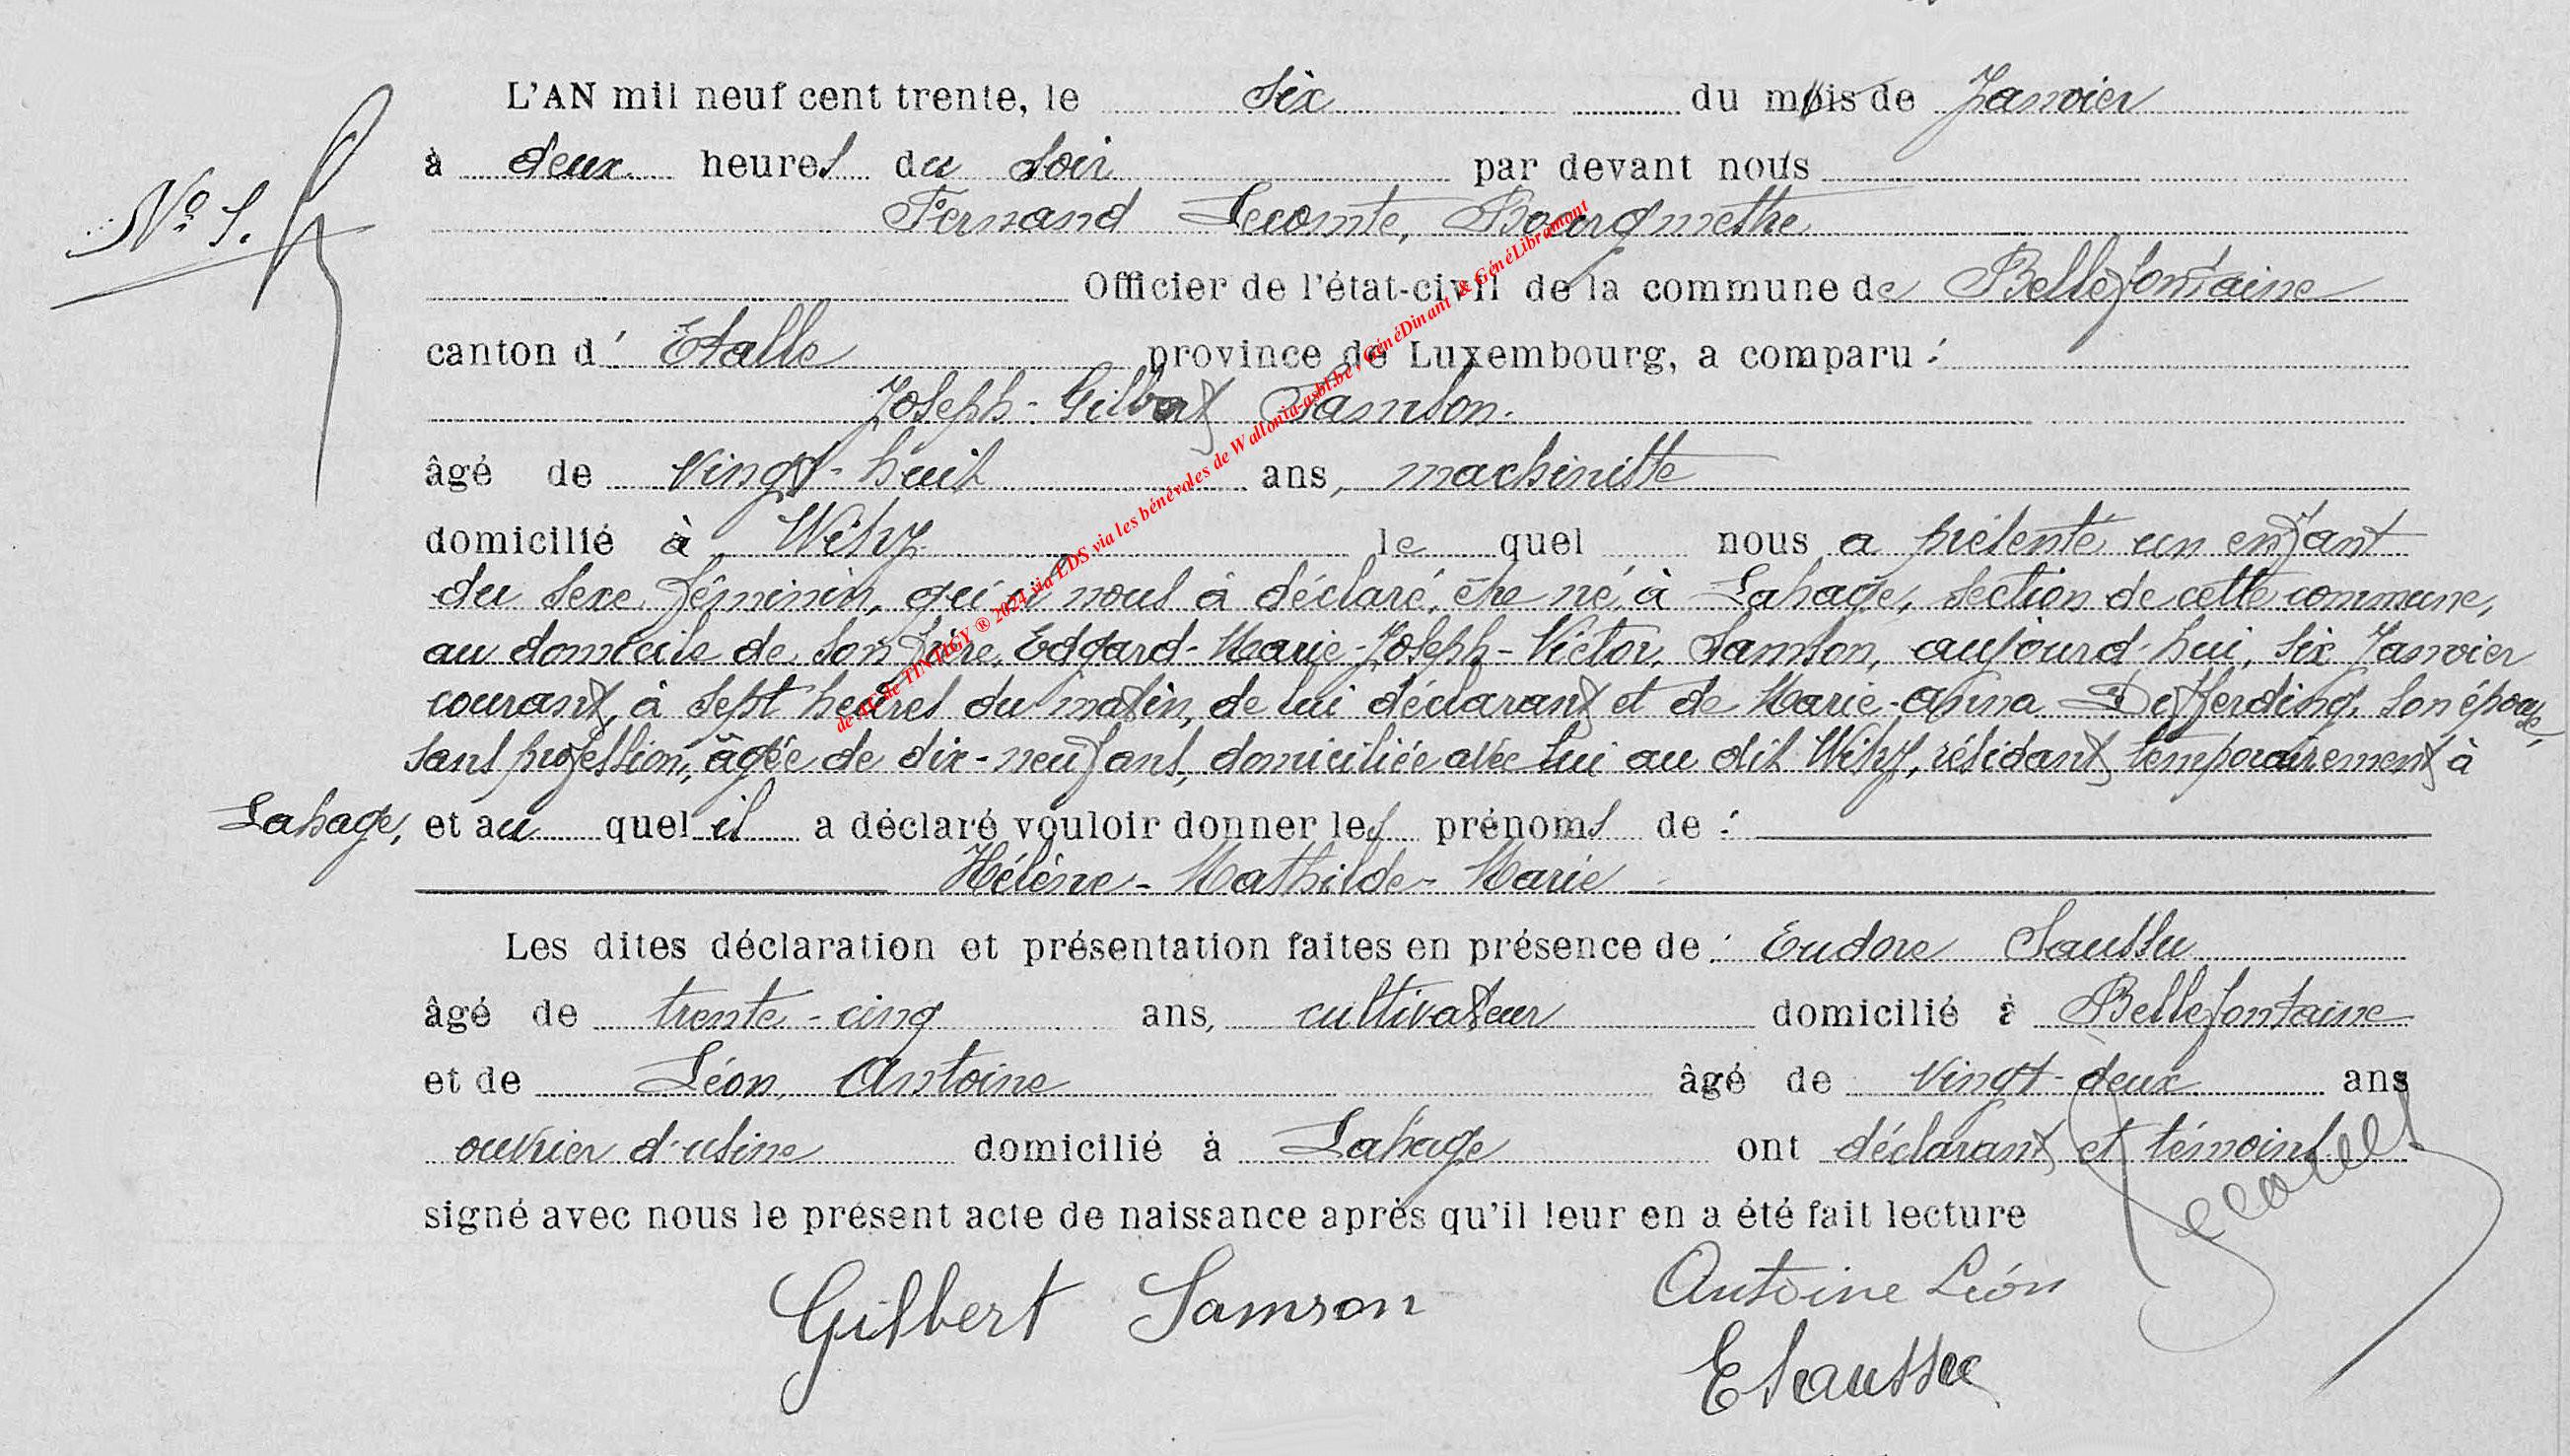 L'AN mil neuf cent trente, le six du mois de Janvier
à deux heures du soir par devant nous
Nº 1.
Fernand Lecomte, Bourgmestre
Officier de l'état-civil de la commune de Bellefontaine
canton d' Etalle province de Luxembourg, a comparu :
Joseph-Gilbert Samson.
âgé de vingt-huit ans, machiniste
domicilié à le quel nous a présenté un enfant
du sexe féminin, qu'il nous a déclaré être né à Lahage, section de cette commune,
au domicile de son Edgard-Marie-Joseph-Victor, Samson, aujourd'hui, six Janvier
courant, à sept heures du matin, de lui déclarant et de Marie-Anna Defferding, son épouse,
sans profession, âgée de dix-neuf ans, domiciliée avec lui au dit résidant temporairement à
Lahage, et au quel il a déclaré vouloir donner les prénoms de :
Hélène-Mathilde-Marie
Les dites déclaration et présentation faites en présence de : Eudore Saussu
âgé de trente-cinq ans, cultivateur domicilié à Bellefontaine
et de Léon Antoine âgé de vingt-deux ans
ouvrier d'usine domicilié à Lahage ont déclarant et témoins
signé avec nous le présent acte de naissance après qu'il leur en a été fait lecture
Gilbert Samson
Antoine Léon
E Saussu
de AC de TINTIGY ® 2024 via LDS via les bénévoles de Wallonia-asbl.be / GénéDinant & GénéLibramont